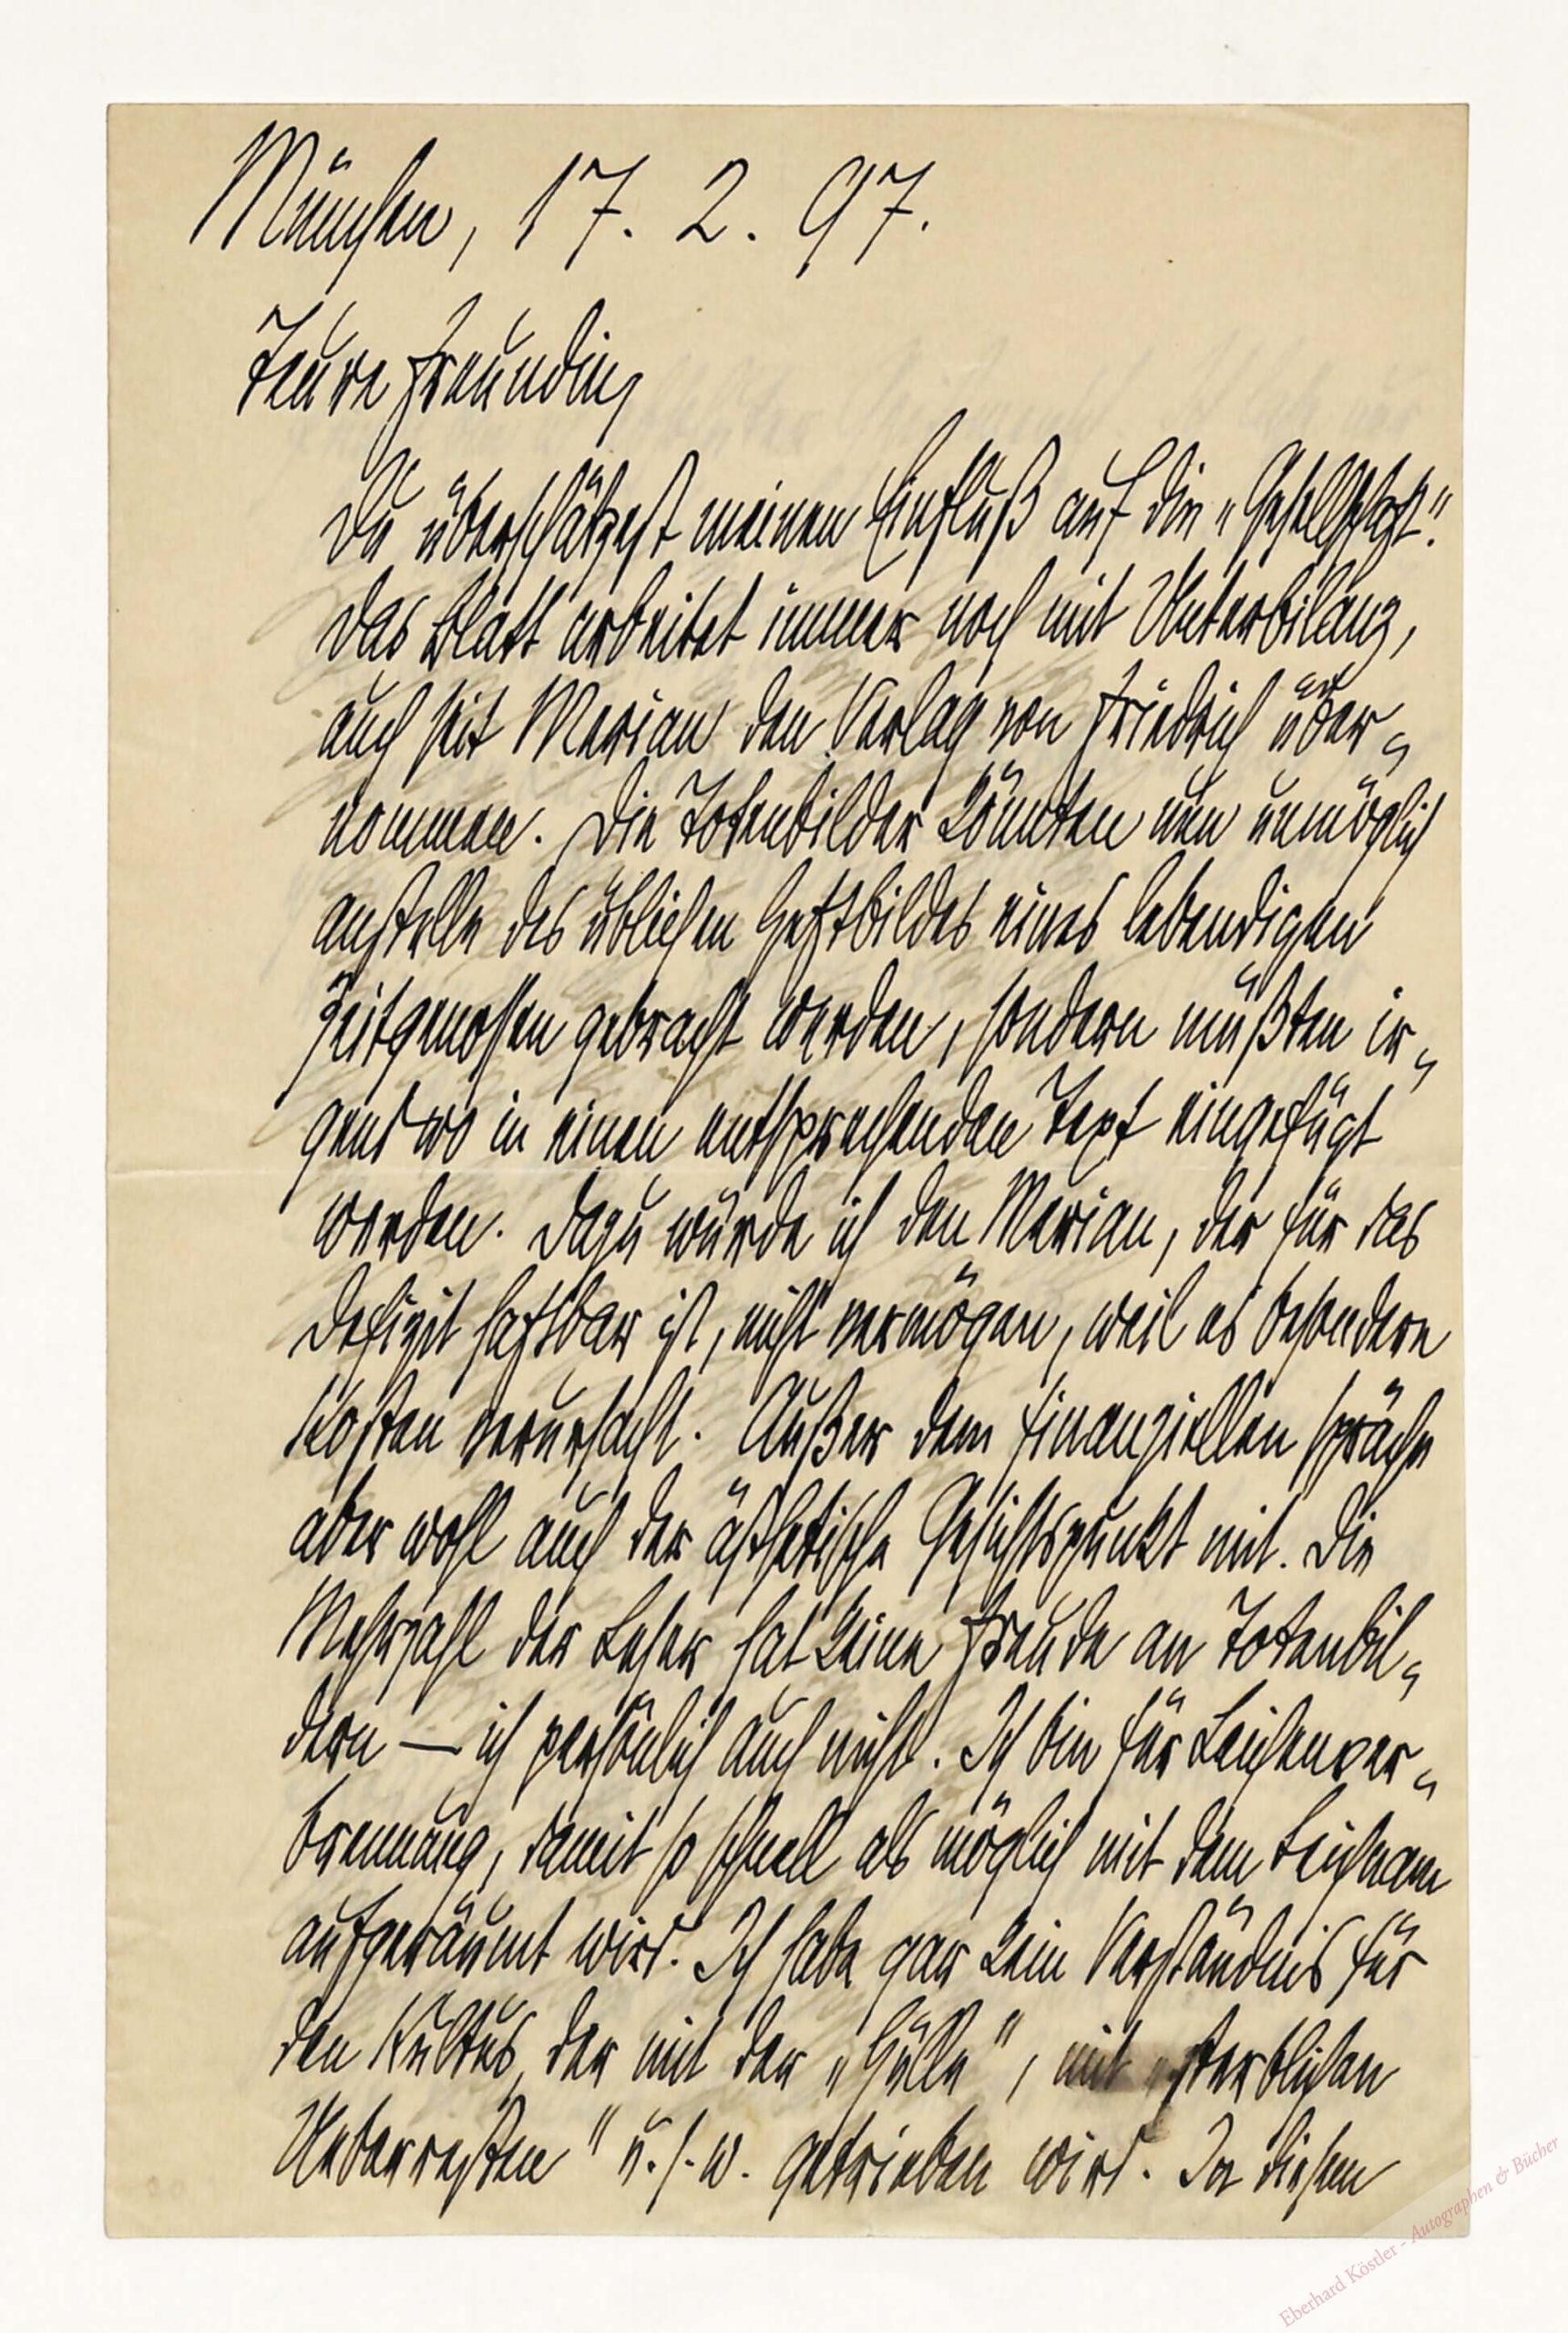 München, 17. 2. 97.
Teure Freundin,
Du überschätzest meinen Einfluß auf die „Gesellschaft".
Das Blatt arbeitet immer noch mit Unterbilanz,
auch seit Merian den Verlag von Friedrich über-
nommen. Die Totenbilder könnten nun unmöglich
anstelle des üblichen Heftbildes eines lebendigen
Zeitgenossen gebracht werden, sondern müßten ir-
gend wo in einen entsprechenden Text eingefügt
werden. Dazu würde ich den Merian, der für das
Defizit haftbar ist, nicht vermögen, weil es besondere
Kosten verursacht. Außer dem finanziellen spräche
aber wohl auch der ästhetische Gesichtspunkt mit. Die
Mehrzahl der Leser hat keine Freude an Totenbil-
dern — ich persönlich auch nicht. Ich bin für Leichenver-
brennung, damit so schnell als möglich mit dem Leichnam
aufgeräumt wird. Ich habe gar kein Verständnis für
den Kultus, der mit der „Hülle", mit „sterblichen
Ueberresten" u.s.w. getrieben wird. In diesem
Eberhard Köstler - Autographen & Bücher